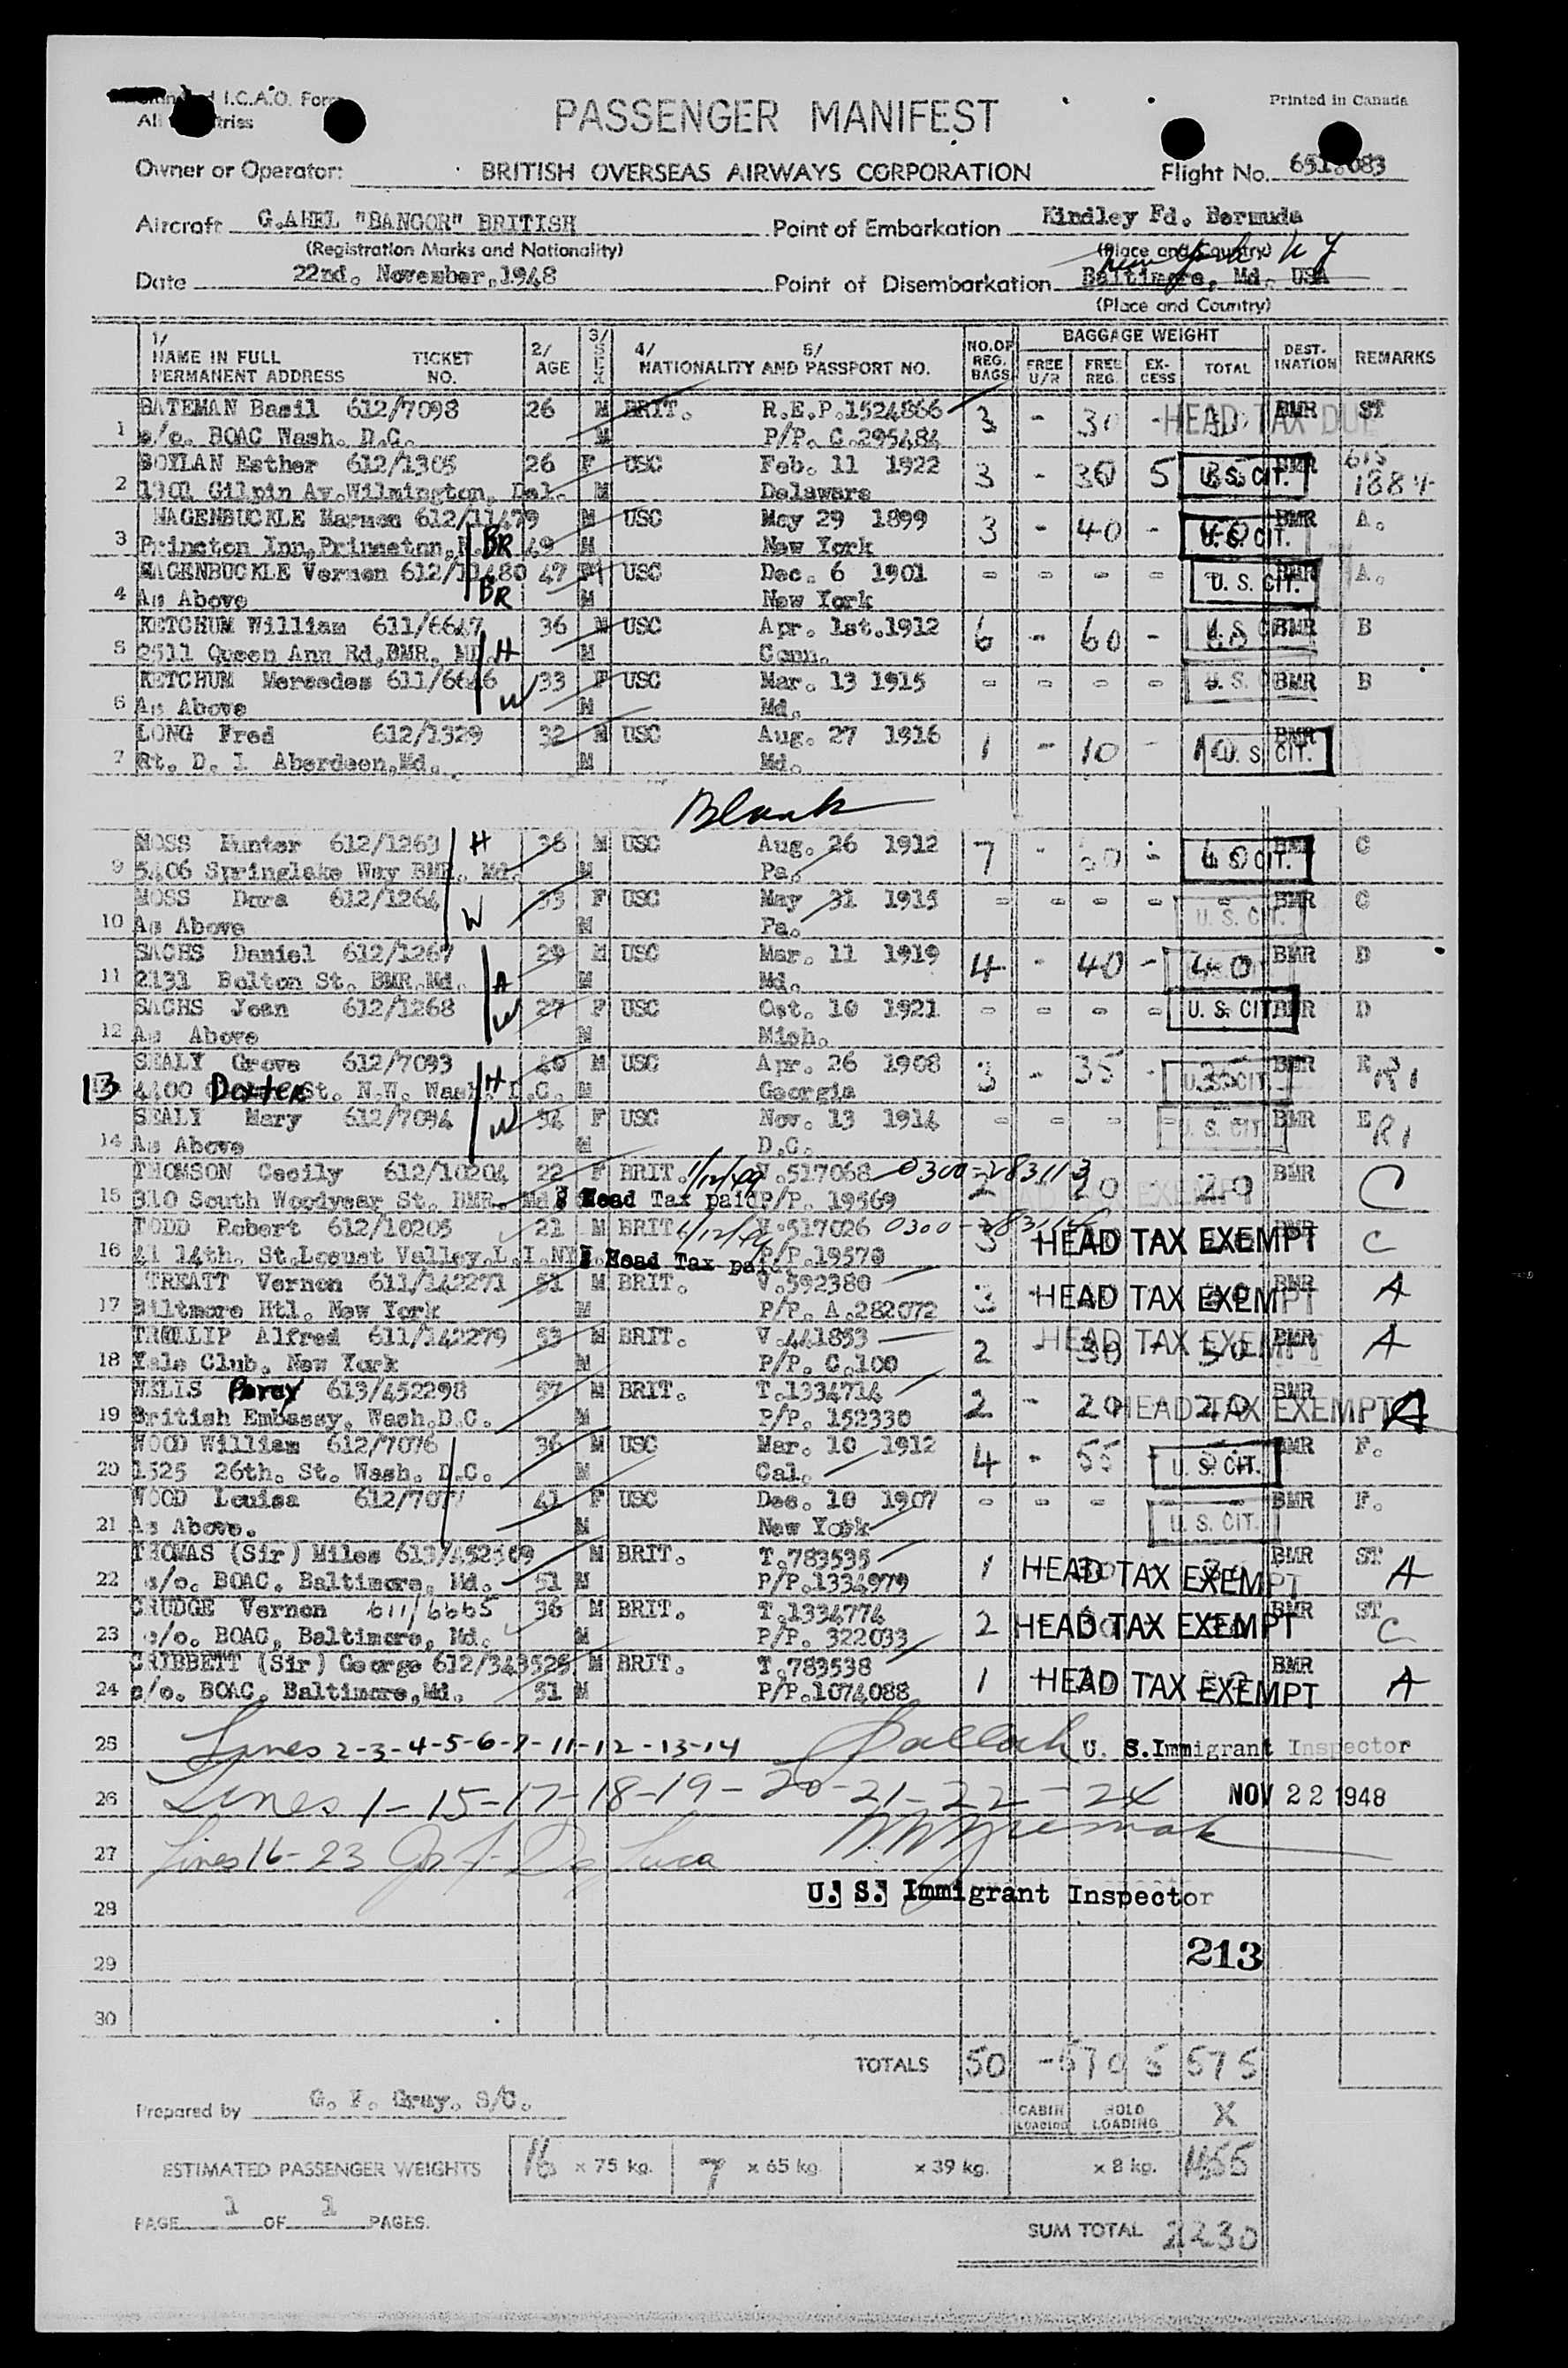 I.C.A.O. Form
Printed in Canada
PASSENGER MANIFEST
Owner or Operator: BRITISH OVERSEAS AIRWAYS CORPORATION Flight No. 651.083
Aircraft G.AHEL "BANGOR" BRITISH Point of Embarkation Kindley Fd. Bermuda
(Registration Marks and Nationality) (Place and Country)
New York N Y
Date 22nd. November,1948 Point of Disembarkation Baltimore, Md. USA
(Place and Country)
1/ NAME IN FULL PERMANENT ADDRESS TICKET NO. 2/ AGE 3/ SEX 4/ NATIONALITY AND 5/ PASSPORT NO. NO. OF REG. BAGS BAGGAGE WEIGHT FREE U/R FREE REG. EXCESS TOTAL DESTINATION REMARKS
BATEMAN Basil 612/7098 26 M BRIT. R.E.P.1524866 3 - 30 - HEAD TAX DUE BMR ST
1 c/o. BOAC Wash. D.C. M P/P. C.295484
BOYLAN Esther 612/1305 26 F USC Feb. 11 1922 3 - 30 5 U.S. CIT. BMR
2 1301 Gilpin Av.Wilmington, Del. M Delaware
NAGENBUCKLE 612/11479 M USC May 29 1899 3 - 40 - U.S. CIT. BMR A.
3 Princton Inn,Princeton, BR 49 M New York
NAGENBUCKLE Vernen 612/11480 47 USC Dec. 6 1901 - - - - U. S. CIT. BMR A.
4 As Above BR M New York
KETCHUM William 611/6647 36 M USC Apr. 1st.1912 6 - 60 - U.S. CIT. BMR B
5 2511 Queen Ann Rd,BMR. MD. H M Conn.
KETCHUM Mercedes 611/6646 33 F USC Mar. 13 1915 - - - - U.S. BMR B
6 As Above W M Md.
LONG Fred 612/1329 32 M USC Aug. 27 1916 1 - 10 - 10 U.S. CIT. BMR
7 Rt. D. 1 Aberdeen,Md. M Md.
Blank
MOSS Hunter 612/1263 H 36 M USC Aug. 26 1912 7 - - U.S. CIT. BMR C
9 5406 Springlake Way BMR. Md. M Pa.
MOSS Dora 612/1264 W 33 F USC May 31 1915 - - - - - U. S. CIT. BMR C
10 As Above M Pa.
SACHS Daniel 612/1267 29 M USC Mar. 11 1919 4 - 40 - 40 BMR D
11 2131 Bolton St. BMR.Md. M Md.
SACHS Jean 612/1268 W 27 F USC Oct. 10 1921 - - - - U. S. CIT. BMR D
12 As Above M Mich.
SEALY Grove 612/7093 40 M USC Apr. 26 1908 3 - 35 - U.S. CIT. BMR E R1
13 4400 Dexter St. N.W. Wash. D.C. H M Georgia
SEALY Mary 612/7094 W 34 F USC Nov. 13 1914 - - - - U. S. CIT. BMR E R1
14 As Above M D.C.
THOMSON Cecily 612/10204 22 F BRIT. 1/12/49 V.517068 0300-283113 2 20 - 20 BMR C
15 310 South Woodyear St. BMR. Md. Head Tax paid P/P. 19569
TODD Robert 612/10205 21 M BRIT. V.517026 0300- 3 HEAD TAX EXEMPT C
16 41 14th. St.Locust Valley.L.I.NY. Head Tax paid P/P.19570
TREATT Vernon 611/142271 51 M BRIT. V.592380 3 - HEAD TAX EXEMPT BMR A
17 Biltmore Htl. New York M P/P. A.282072
TROLLIP Alfred 611/142279 53 M BRIT. V.441853 2 - 30 - 30 HEAD TAX EXEMPT BMR A
18 Yale Club. New York M P/P. C.100
WELLS Percy 613/452298 57 M BRIT. T.1334714 2 - 20 - 20 HEAD TAX EXEMPT BMR A
19 British Embassy. Wash.D.C. M P/P. 152330
WOOD William 612/7076 36 M USC Mar. 10 1912 4 - 55 U. S. CIT. BMR F.
20 1525 26th. St. Wash. D.C. M Cal.
WOOD Louisa 612/7077 41 F USC Dec. 10 1907 - - - U. S. CIT. BMR F.
21 As Above. M New York
THOMAS (Sir) Miles 613/452369 M BRIT. T.783535 1 HEAD TAX EXEMPT BMR ST A
22 c/o. BOAC. Baltimore, Md. 51 M P/P.1334979
CRUDGE Vernon 611/6665 36 M BRIT. T.1334774 2 HEAD TAX EXEMPT BMR ST C
23 c/o. BOAC, Baltimore, Md. M P/P. 322033
CRIBBETT (Sir) George 612/343525 M BRIT. T.783538 1 HEAD TAX EXEMPT BMR A
24 c/o. BOAC, Baltimore,Md. 51 M P/P.1074088
25 Lines 2-3-4-5-6-7-11-12-13-14 U. S.Immigrant Inspector
26 Lines 1-15-17-18-19-20-21-22-24 NOV 22 1948
27 Lines 16-23
28 U. S. Immigrant Inspector
29 213
30
TOTALS 50 - 570 5 575
Prepared by G. F. Gray. S/C. CABIN LOADING HOLD LOADING X
ESTIMATED PASSENGER WEIGHTS 16 x 75 kg. 7 x 65 kg. x 39 kg. x 8 kg. 1655
PAGE 1 OF 1 PAGES.
SUM TOTAL 2230